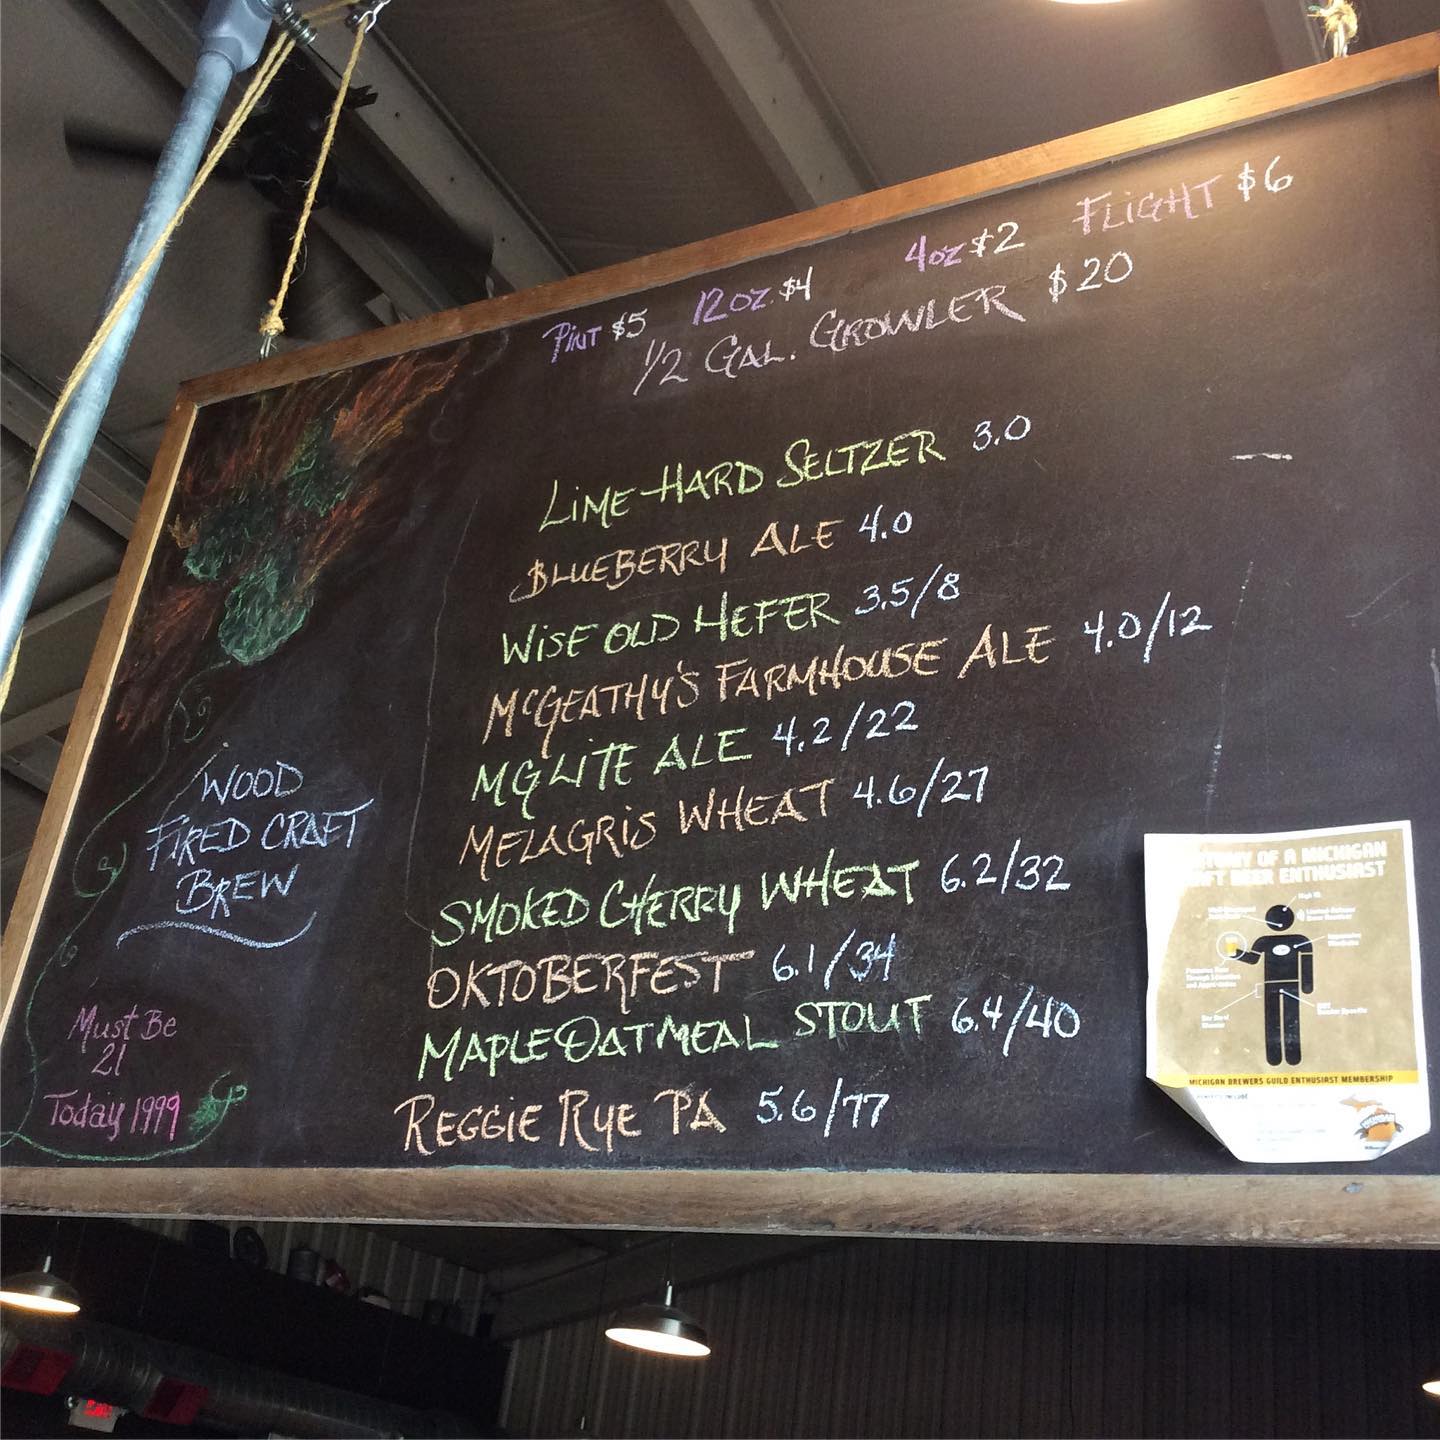 PINT $5 12OZ. $4 4OZ $2 FLIGHT $6
1/2 GAL. GROWLER $20
LIME HARD SELTZER 3.0
BLUEBERRY ALE 4.0
WISE OLD HEFER 3.5/8
MCGEATHY'S FARMHOUSE ALE 4.0/12
MG LITE ALE 4.2/22
MELAGRIS WHEAT 4.6/27
SMOKED CHERRY WHEAT 6.2/32
OKTOBERFEST 6.1/34
MAPLE OATMEAL STOUT 6.4/40
REGGIE RYE PA 5.6/77
WOOD
FIRED CRAFT
BREW
Must Be
21
Today 1999
OF A MICHIGAN
BEER ENTHUSIAST
High IQ
MICHIGAN BREWERS GUILD ENTHUSIAST MEMBERSHIP